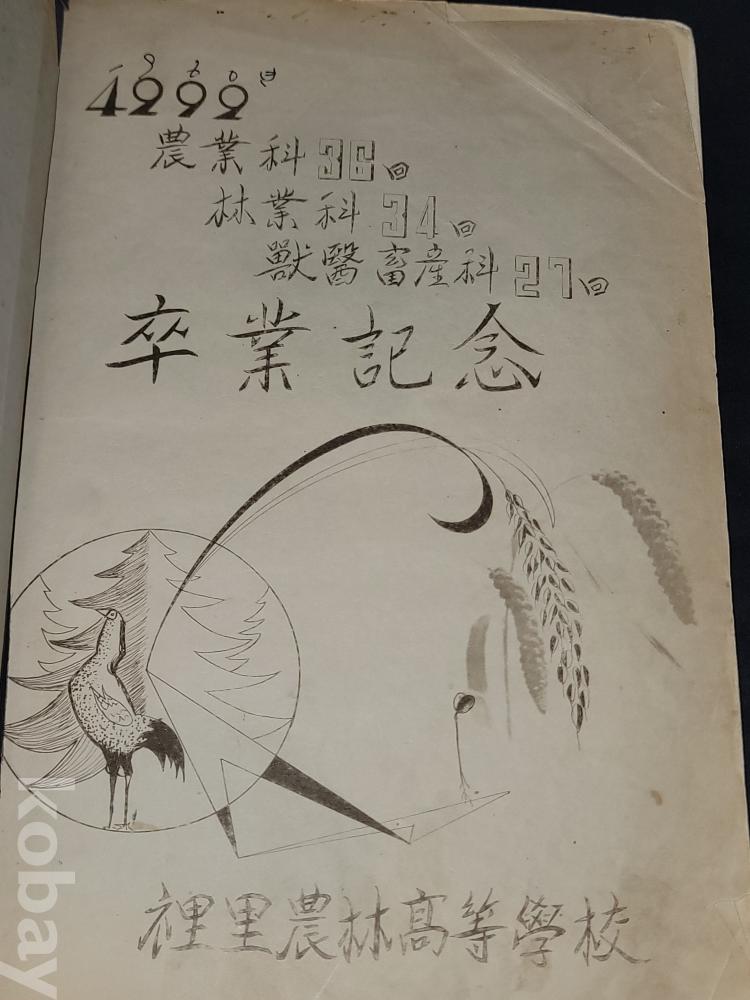 1960년
4292
農業科 36回
林業科 34回
獸醫畜産科 27回
卒業記念
裡里農林高等學校
kobay